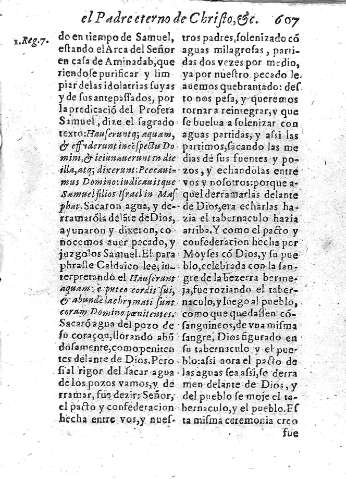 el Padre eterno de Christo, &c. 607
1. Reg. 7.
do en tiempo de Samuel,
estando el Arca del Señor
en casa de Aminadab, que
riendose purificar y lim
piar de las idolatrias suyas
y de sus antepassados, por
la predicació del Profeta
Samuel, dize el sagrado
texto: Hauseruntq; aquam,
& effuderunt in cōspectu Do
mini, & ieiunauerunt in die
illa, atq; dixerunt: Peccaui
mus Domino: iudicauitque
Samuel filios Israel in Mas
phat. Sacaron agua, y de-
rramarōla delāte de Dios,
ayunaron y dixeron, co-
nocemos auer pecado, y
juzgolos Samuel. El para
phraste Caldaico lee, in-
terpretando el Hauserunt
aquam: e puteo cordis sui,
& abunde lachrymati sunt
coram Domino pœnitentes.
Sacarō agua del pozo de
su coraçon, llorando abū
dosamente, como peniten
tes delante de Dios. Pero
si al rigor del sacar agua
de los pozos vamos, y de
rramar, fue dezir: Señor,
el pacto y confederacion
hecha entre vos, y nues-
tros padres, solenizado có
aguas milagrosas, parti-
das dos vezes por medio,
ya por nuestro pecado le
auemos quebrantado: des
to nos pesa, y queremos
tornar a reintegrar, y que
se buelua a solenizar con
aguas partidas, y assi las
partimos, sacando las me
dias de sus fuentes y po-
zos, y echandolas entre
vos y nosotros: porque a-
quel derramarlas delante
de Dios, era echarlas haz
ia el tabernaculo hazia
arriba. Y como el pacto y
confederacion hecha por
Moyses có Dios, y su pue
blo, celebrada con la san-
gre de la bezerra berme-
ja, fue roziando el taber-
naculo, y luego al pueblo,
como que quedassen có-
sanguineos, de vna misma
sangre, Dios figurado en
su tabernaculo y el pue-
blo: assi aora el pacto de
las aguas sea assi, se derra
men delante de Dios, y
del pueblo se moje el ta-
bernaculo, y el pueblo. Es
ta misma ceremonia creo
fue